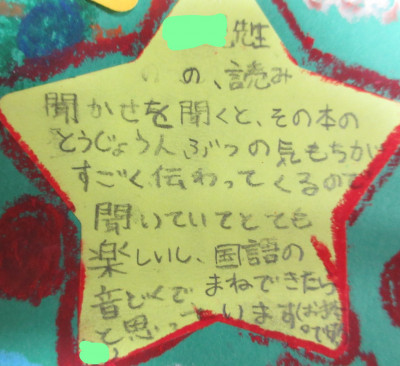 先生
の、読み
聞かせを聞くと、その本の
とうじょう人ぶつの気もちが
すごく伝わってくるので
聞いていてとても
楽しいし、国語の
音どくでまねできたら
と思っています